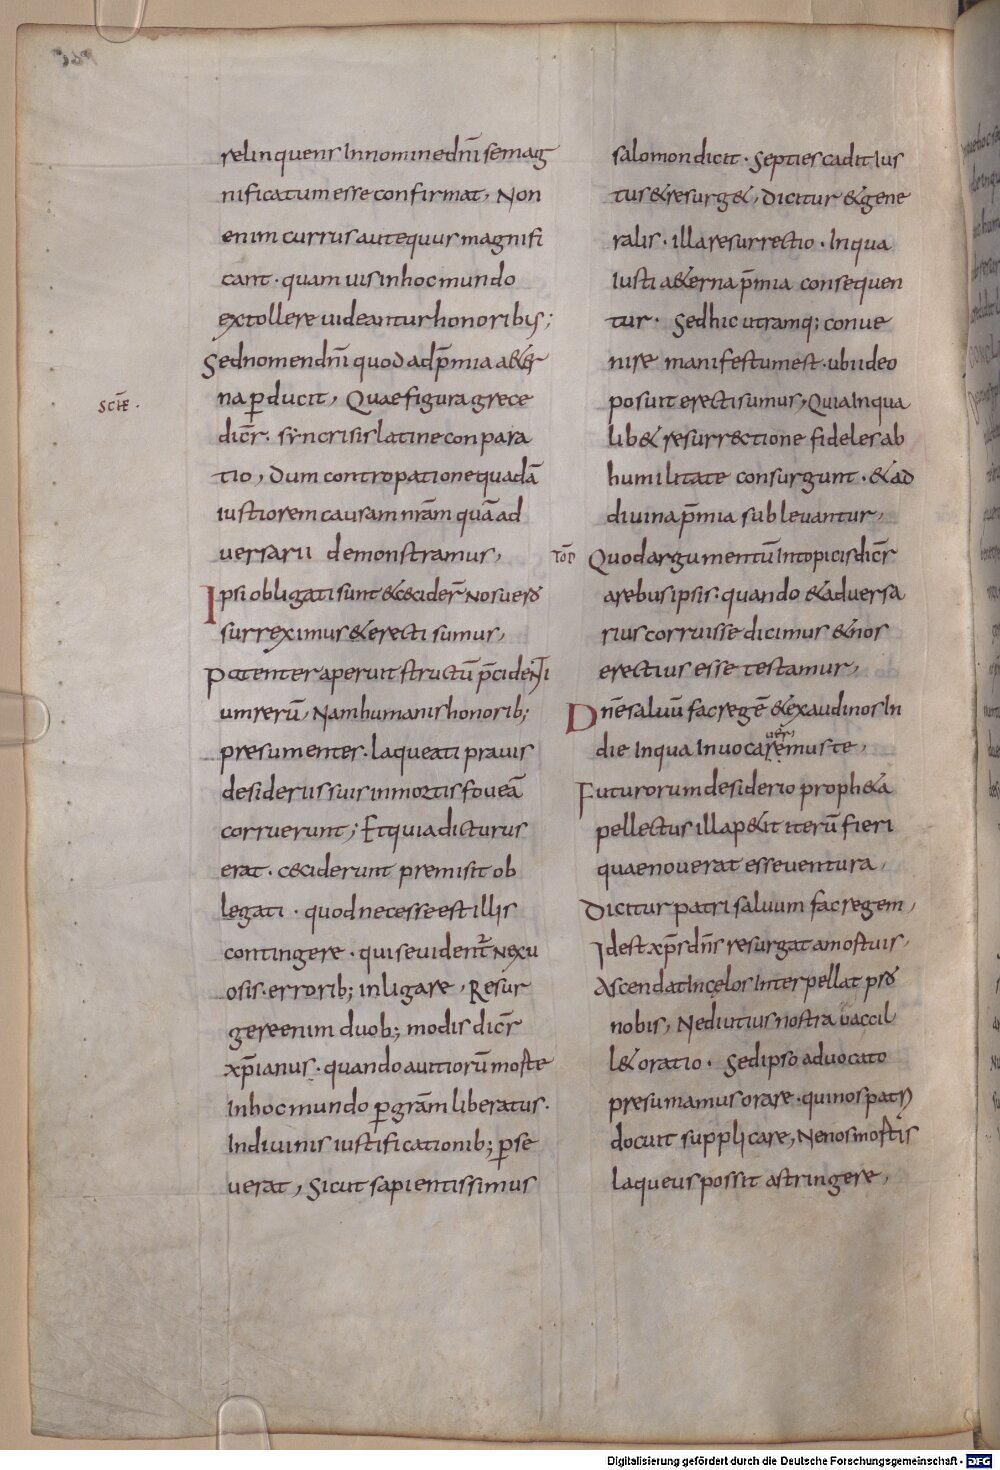 relinquens In nomine dn̄i se mag
nificatum esse confirmat, Non
enim currus aut equus magnifi
cant · quam uis in hoc mundo
extollere uideantur honorib;;
Sed nomen dn̄i quod ad p̄mia a&er
na ꝑducit, Quae figura grece
SCHE·
dicr̄· syncrisis latine conpara
tio, Dum contropatione quadā
iustiorem causam nr̄am quā ad
uersarii demonstramus,
Ipsi obligati sunt & cecider̄ Nos uero
surreximus & erecti sumus,
Patenter aperuit structū p̄cidenti
um rerū, Nam humanis honorib;
presumentes · laqueati prauis
desideriis suis in mortis foueā
corruerunt; Et quia dicturus
erat · ceciderunt premisit ob
legati · quod necesse est illis
contingere · qui se uident̄ Nexu
osis · errorib; inligare, Resur
gere enim duob; modis dicr̄
xp̄ianus · quando a uitiorū morte
In hoc mundo ꝑ gr̄am liberatus·
In diuinis iustificationib; ꝑse
uerat, Sicut sapientissimus
salomon dicit · Septies cadit Ius
tus & resurg&, Dicitur & gene
ralis · illa resurrectio · In qua
Iusti a&erna p̄mia consequen
tur · Sed hic utramq; conue
nire manifestum est · ubi ideo
posuit erecti sumus, Quia In qua
lib& resurrectione fideles ab
humilitate consurgunt · & ad
diuina p̄mia subleuantur,
TOP̄
Quod argumentū In topicis dicr̄
a rebus ipsis · quando & aduersa
rius corruisse dicimus & nos
erectius esse testamur,
Dn̄e saluū fac regē & exaudi nos In
die In qua Inuocaremus te,
uer
Futurorum desiderio proph&a
pellectus illa p&it iterū fieri
quae nouerat esse uentura,
Dicitur patri saluum fac regem,
Id est xp̄s dn̄s resurgat a mortuis,
Ascendat In cęlos Interpellat pro
nobis, Ne diutius nostra uaccil
l& oratio · Sed ipso aduocato
presumamus orare · qui nos patri
docuit supplicare, Ne nos mortis
laqueus possit astringere,
Digitalisierung gefördert durch die Deutsche Forschungsgemeinschaft - DFG